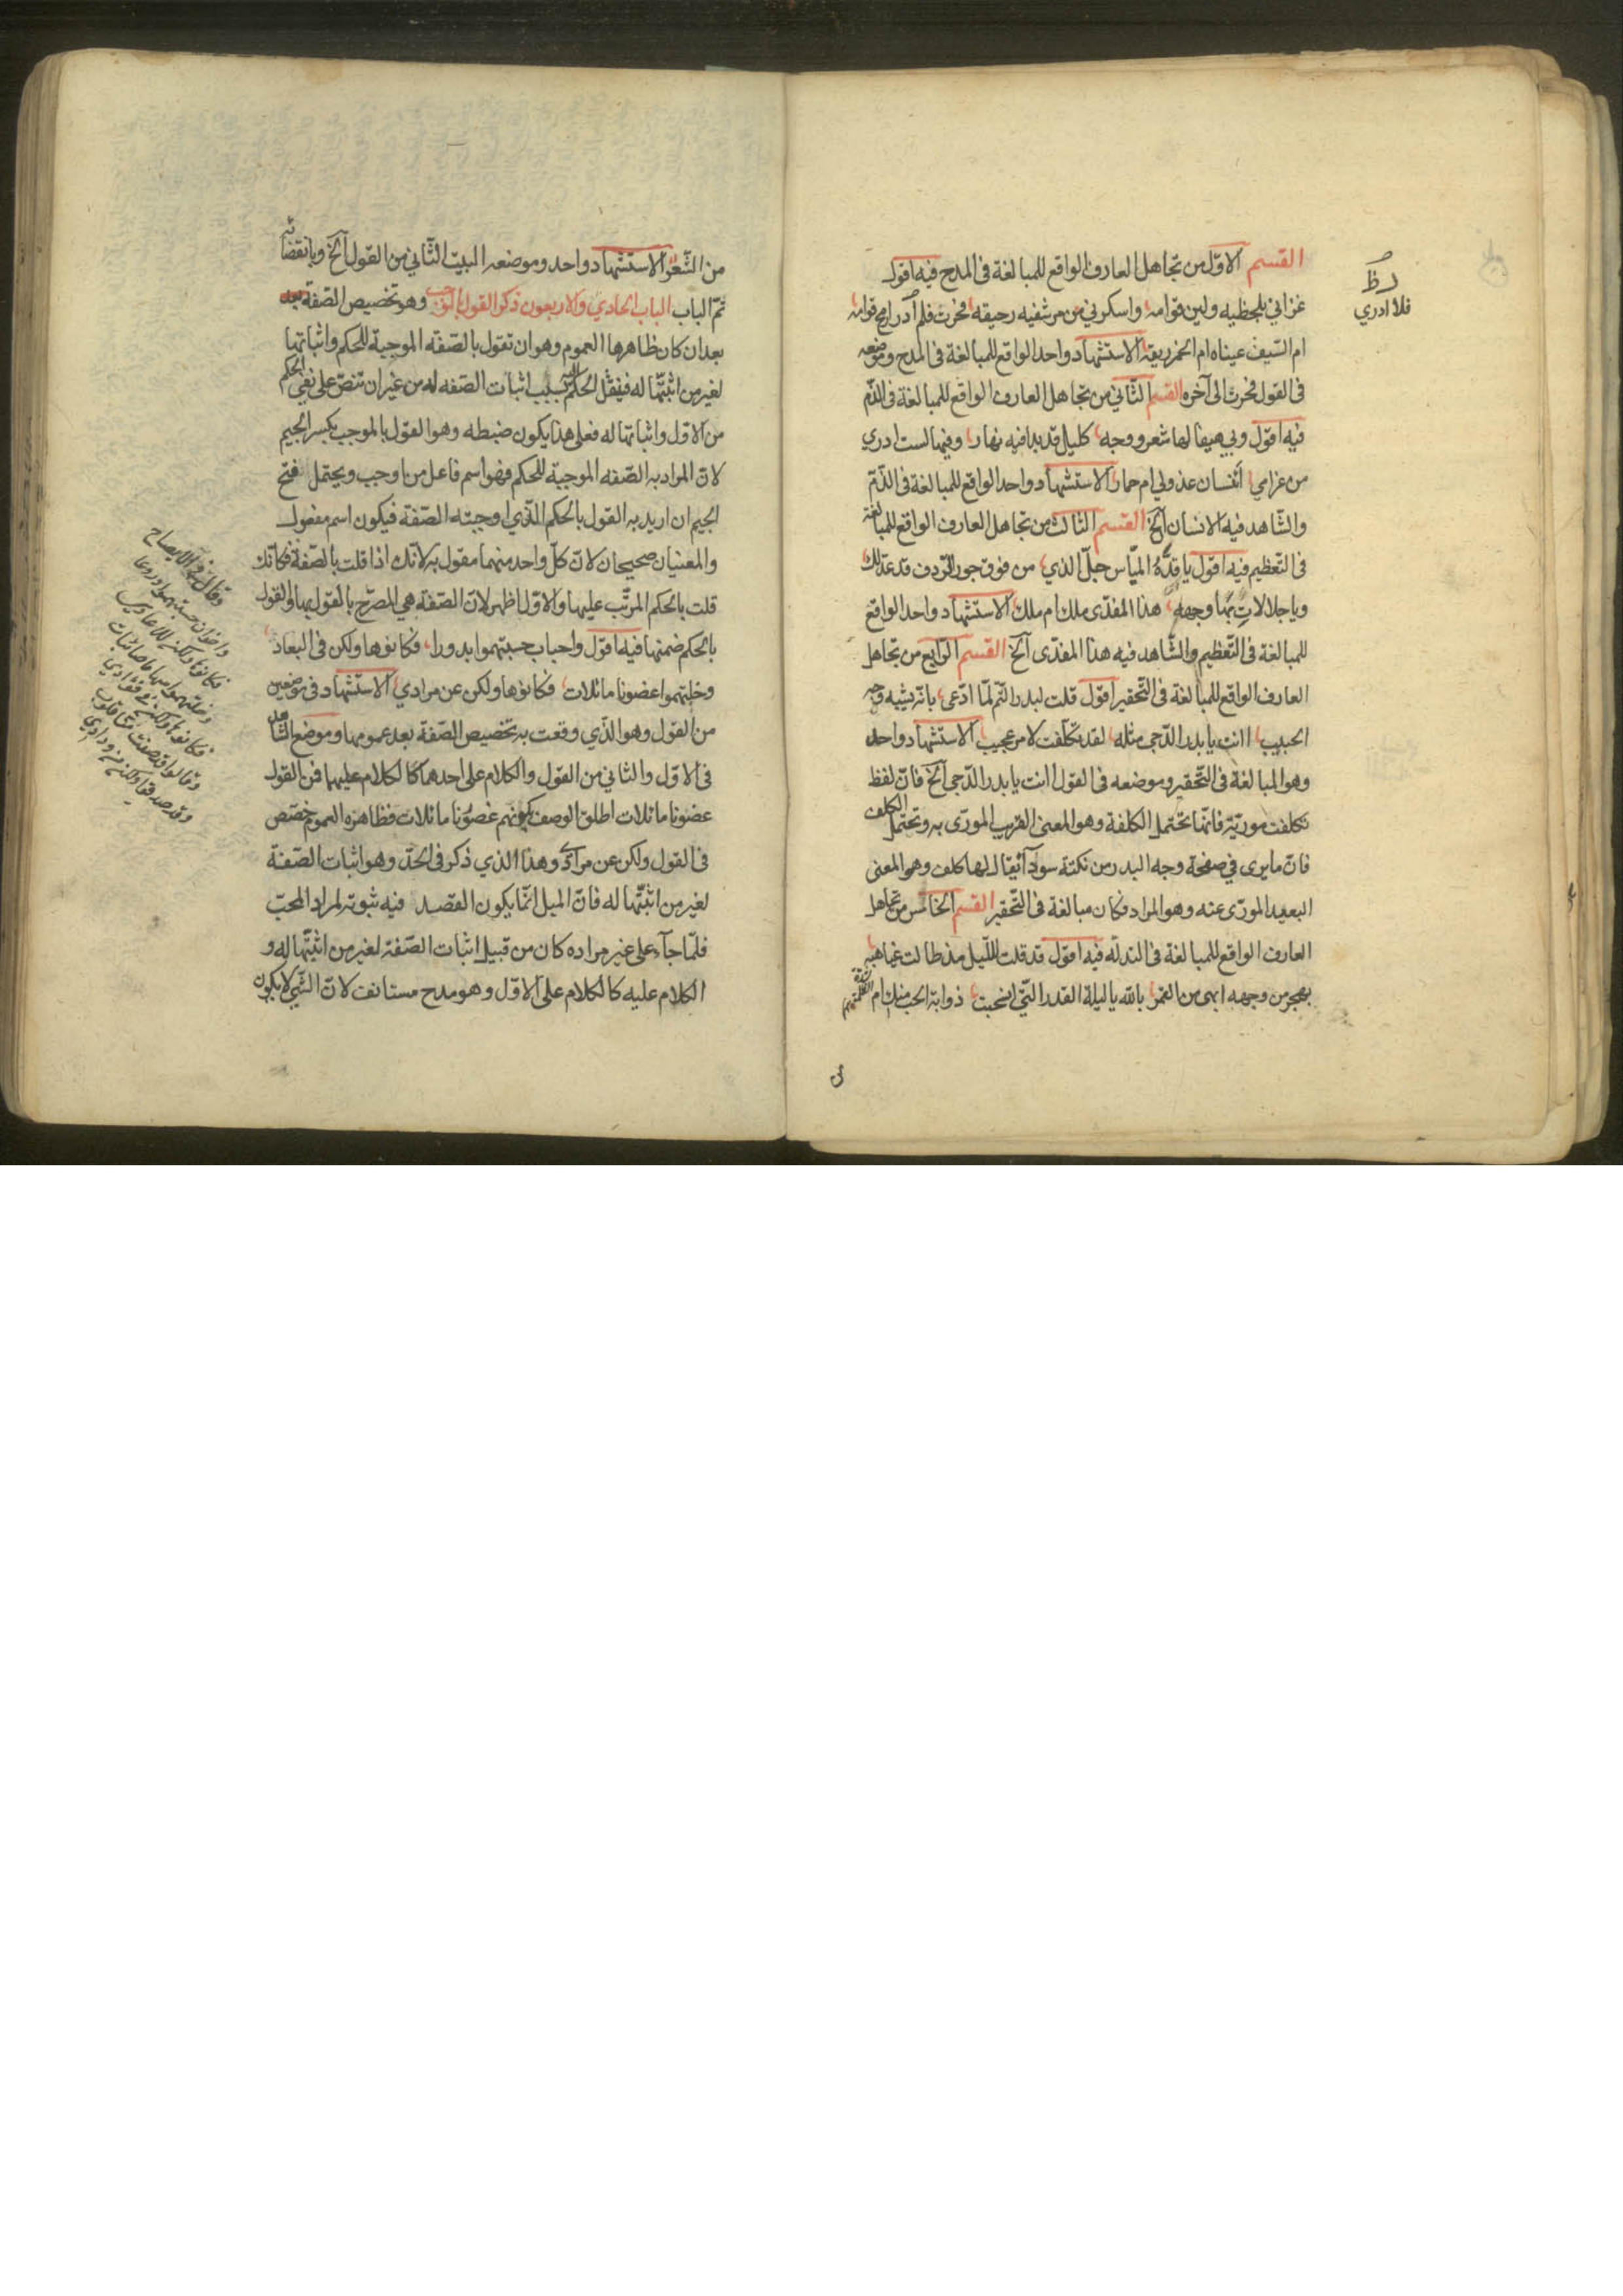 القسم الاوّل من تجاهل العارف الواقع للمبالغة فى المدح فيه اقول
غزاني بلحظيه ولين قوامه واسكرني من مرشفيه رحيقه فحرت فلم ادر ارمح قوامه
ام السّيف عيناه ام الخمر ريقه الاستشهاد واحد الواقع للمبالغة فى المدح وموضعه
فى القول فحرت الى آخره القسم الثّاني من تجاهل العارف الواقع للمبالغة فى الذّم
فيه اقول وبي هيفا لها شعر ووجه كليل قد بدا فيه نهار وفيها لست ادري
من غرامي أانسان عذولي ام حمار الاستشهاد واحد الواقع للمبالغة فى الذّمّ
والشّاهد فيه الانسان آلخ القسم الثالث من تجاهل العارف الواقع للمبالغة
فى التّعظيم فيه اقول يا قدّه الميّاس جلّ الذي من فوق جور الرّدف قد عدّلك
ويا جلالات بها وجهه هذا المفدّى ملك ام ملك الاستشهاد واحد الواقع
للمبالغة فى التّعظيم والشّاهد فيه هذا المفدّى آلخ القسم الرّابع من تجاهل
العارف الواقع للمبالغة فى التّحقير اقول قلت لبدر التّم لمّا ادّعى بانّه يشبه وجه
الحبيب اانت يا بدر الدّجى مثله لقد تكلّفت لامر عجيب الاستشهاد واحد
وهو المبالغة فى التّحقير وموضعه فى القول اانت يا بدر الدّجى آلخ فانّ لفظ
تكلفت مورّيّة فانّها تحتمل الكلفة وهو المعنى القريب المورّى به وتحتمل الكلف
فانّ ما يرى في صفحة وجه البدر من نكتة سودآء يقال لها كلف وهو المعنى
البعيد المورّى عنه وهو المراد فكان مبالغة فى التّحقير القسم الخامس من تجاهل
العارف الواقع للمبالغة فى التدلّه فيه اقول قد قلت للّيل مذ طالت غياهبه
بهجر من وجهه ابهى من القمر بالله يا ليلة القدر الّتي انحبت ذوابة الحب منك ام
فلا ادري
من الشّعر الاستشهاد واحد وموضعه البيت الثّاني من القول آلخ وبانقضائه
تمّ الباب الباب الحادي والاربعون ذكر القول بالموجب وهو تخصيص الصّفة بعد
بعد ان كان ظاهرها العموم وهو ان تقول بالصّفة الموجبة للحكم واثباتها
لغير من اثبتّها له فينقل الحكم بسبب اثبات الصّفه له من غير ان تنصّ على نفي الحكم
من الاوّل واثباتها له فعلى هذا يكون ضبطه وهو القول بالموجب بكسر الجيم
لانّ المراد به الصّفه الموجبة للحكم فهو اسم فاعل من اوجب ويحتمل فتح
الجيم ان اريد به القول بالحكم الّذي اوجبته الصّفة فيكون اسم مفعول
والمعنيان صحيحان لانّ كلّ واحد منهما مقول به لانّك اذا قلت بالصّفة فكانّك
قلت بالحكم المرتّب عليها والاوّل اظهر لانّ الصّفة هي المصرّح بالقول بها والقول
بالحكم ضمنها فيه اقول واحباب حسبتهموا بدورا فكانوها ولكن فى البعاد
وخلتهموا غصونا مائلات فكانوها ولكن عن مرادي الاستشهاد فى موضعين
من القول وهو الّذي وقعت به تخصيص الصّفة بعد عمومها وموضع الشّاهد
فى الاوّل والثاني من القول والكلام على احدهما كالكلام عليهما فمن القول
غصونا مائلات اطلق الوصف بكونهم غصونا مائلات فظاهره العموم خصّص
فى القول ولكن عن مرادي وهذا الذي ذكر فى الحدّ وهو اثبات الصّفة
لغير من اثبتّها له فانّ الميل انّما يكون القصد فيه ثبوته لمراد المحبّ
فلمّا جآء على غير مراده كان من قبيل اثبات الصّفة لغير من اثبتّها له و
الكلام عليه كالكلام على الاوّل وهو مدح مستانف لانّ الشّي لا يكون
واخوان حسبتهموا دروعا
فكانوها ولكن للاعادي
وخلتهموا سهاما صائبات
فكانوها ولكن في فؤادي
وقالوا قد صفت منّا قلوب
وقد صدقوا ولكن من ودادي